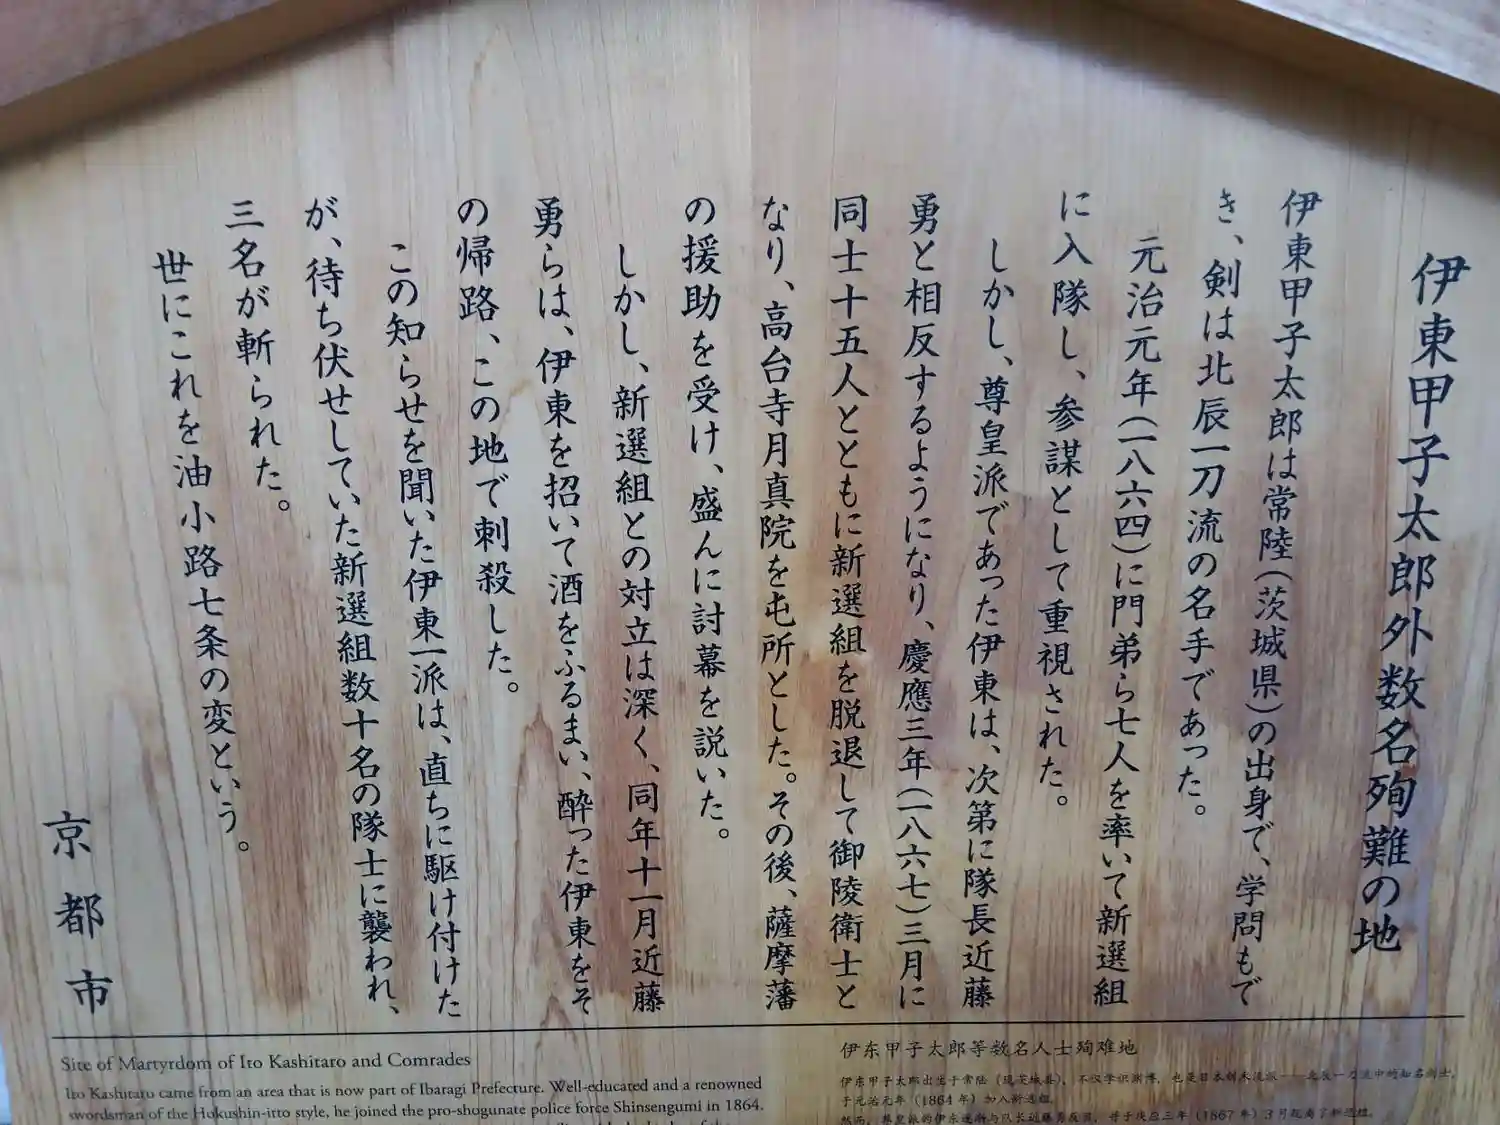 伊東甲子太郎外数名殉難の地
伊東甲子太郎は常陸(茨城県)の出身で、学問もで
き、剣は北辰一刀流の名手であった。
元治元年(一八六四)に門弟ら七人を率いて新選組
に入隊し、参謀として重視された。
しかし、尊皇派であった伊東は、次第に隊長近藤
勇と相反するようになり、慶應三年(一八六七)三月に
同士十五人とともに新選組を脱退して御陵衛士と
なり、高台寺月真院を屯所とした。その後、薩摩藩
の援助を受け、盛んに討幕を説いた。
しかし、新選組との対立は深く、同年十一月近藤
勇らは、伊東を招いて酒をふるまい、酔った伊東をそ
の帰路、この地で刺殺した。
この知らせを聞いた伊東一派は、直ちに駆け付けた
が、待ち伏せしていた新選組数十名の隊士に襲われ、
三名が斬られた。
世にこれを油小路七条の変という。
京都市
Site of Martyrdom of Ito Kashitaro and Comrades
Ito Kashitaro came from an area that is now part of Ibaragi Prefecture. Well-educated and a renowned
swordsman of the Hokushin-itto style, he joined the pro-shogunate police force Shinsengumi in 1864.
伊东甲子太郎等数名人士殉难地
伊东甲子太郎出生于常陆(现茨城县),不仅学识渊博,也是日本剑术流派——北辰一刀流中的知名剑士。
于元治元年(1864年)加入新选组。
然而,尊皇派的伊东逐渐与队长近藤勇反目,并于庆应三年(1867年)3月脱离了新选组。